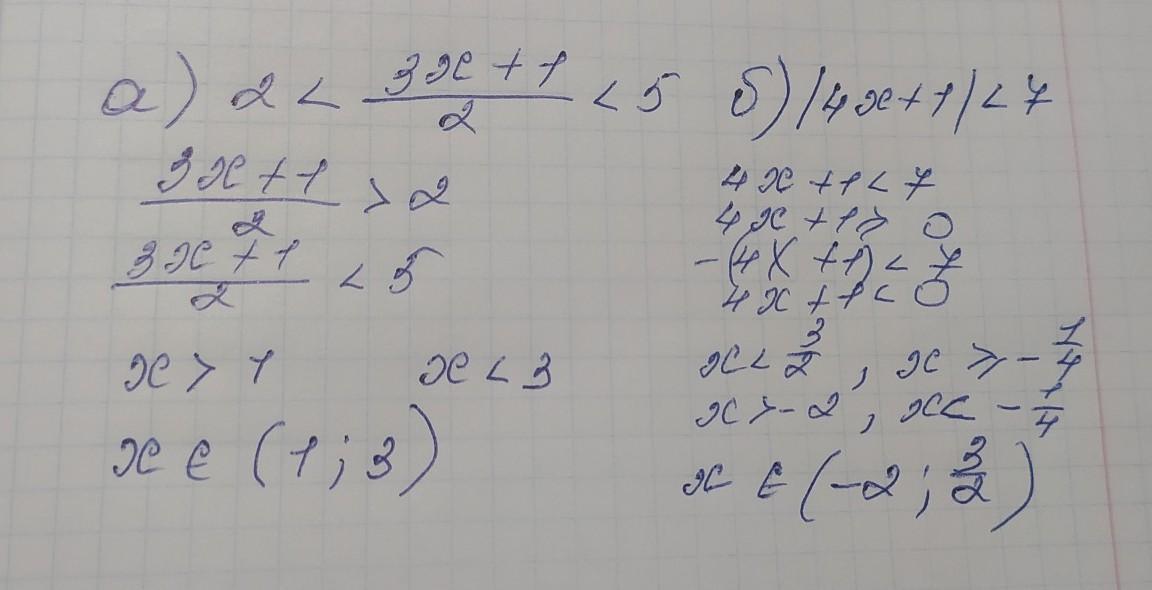 а) 2 < (3x+1)/2 < 5
(3x+1)/2 > 2
(3x+1)/2 < 5
x > 1 x < 3
x ∈ (1; 3)
б) |4x+1| < 7
4x+1 < 7
4x+1 ≥ 0
-(4x+1) < 7
4x+1 < 0
x < 3/2, x ≥ -1/4
x > -2, x < -1/4
x ∈ (-2; 3/2)